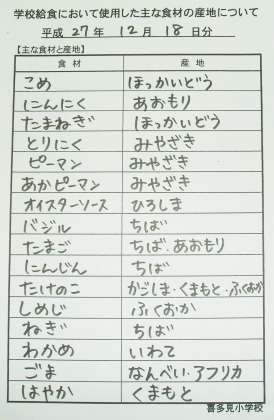 学校給食において使用した主な食材の産地について
平成 27 年 12 月 18 日分
【主な食材と産地】
食材 産地
こめ ほっかいどう
にんにく あおもり
たまねぎ ほっかいどう
とりにく みやざき
ピーマン みやざき
あかピーマン みやざき
オイスターソース ひろしま
バジル ちば
たまご ちば、あおもり
にんじん ちば
たけのこ かごしま・くまもと・ふくおか
しめじ ふくおか
ねぎ ちば
わかめ いわて
ごま なんべい・アフリカ
はやか くまもと
喜多見小学校